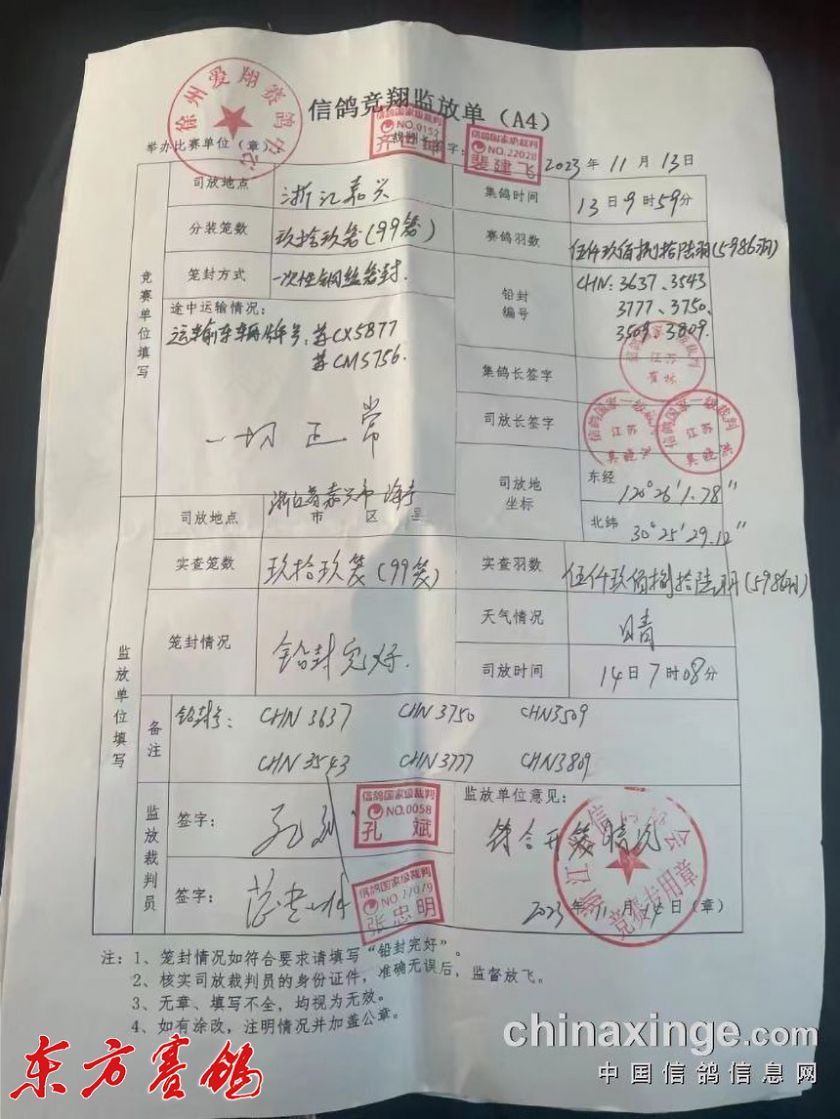 信鸽竞翔监放单（A4）
徐州爱翔赛鸽中心
举办比赛单位（章）：
信鸽国家级裁判
NO.0152
信鸽国家级裁判
NO.22028
裴建飞
2023年11月13日
竞赛单位填写
司放地点 浙江嘉兴
集鸽时间 13日9时59分
分装笼数 玖拾玖笼(99笼)
赛鸽羽数 伍仟玖佰捌拾陆羽(5986羽)
笼封方式 一次性钢丝笼封.
铅封编号 CHN:3637、3543
3777、3750、
3509、3809.
途中运输情况：
运输车辆牌号:苏CX5B77
苏CM5756.
一切正常
集鸽长签字
江苏
司放长签字
信鸽国家一级裁判
江苏
吴晓
信鸽国家一级裁判
江苏
吴晓
司放地坐标
东经 120°26′1.78″
北纬 30°25′29.12″
监放单位填写
司放地点 浙江省嘉兴市海宁
市 区 县
实查笼数 玖拾玖笼(99笼)
实查羽数 伍仟玖佰捌拾陆羽(5986羽)
笼封情况 铅封完好.
天气情况 晴
司放时间 14日7时08分
备注
铅封号: CHN3637 CHN3750 CHN3509
CHN3543 CHN3777 CHN3809
监放裁判员
签字：
信鸽国家级裁判
NO.0058
孔斌
签字：
信鸽国家级裁判
NO.22029
张忠明
监放单位意见：
符合开笼情况
竞赛专用章
2023年11月14日（章）
注：1、笼封情况如符合要求请填写“铅封完好”。
2、核实司放裁判员的身份证件，准确无误后，监督放飞。
3、无章、填写不全，均视为无效。
4、如有涂改，注明情况并加盖公章。
东方赛鸽
chinaxinge.com
中国信鸽信息网